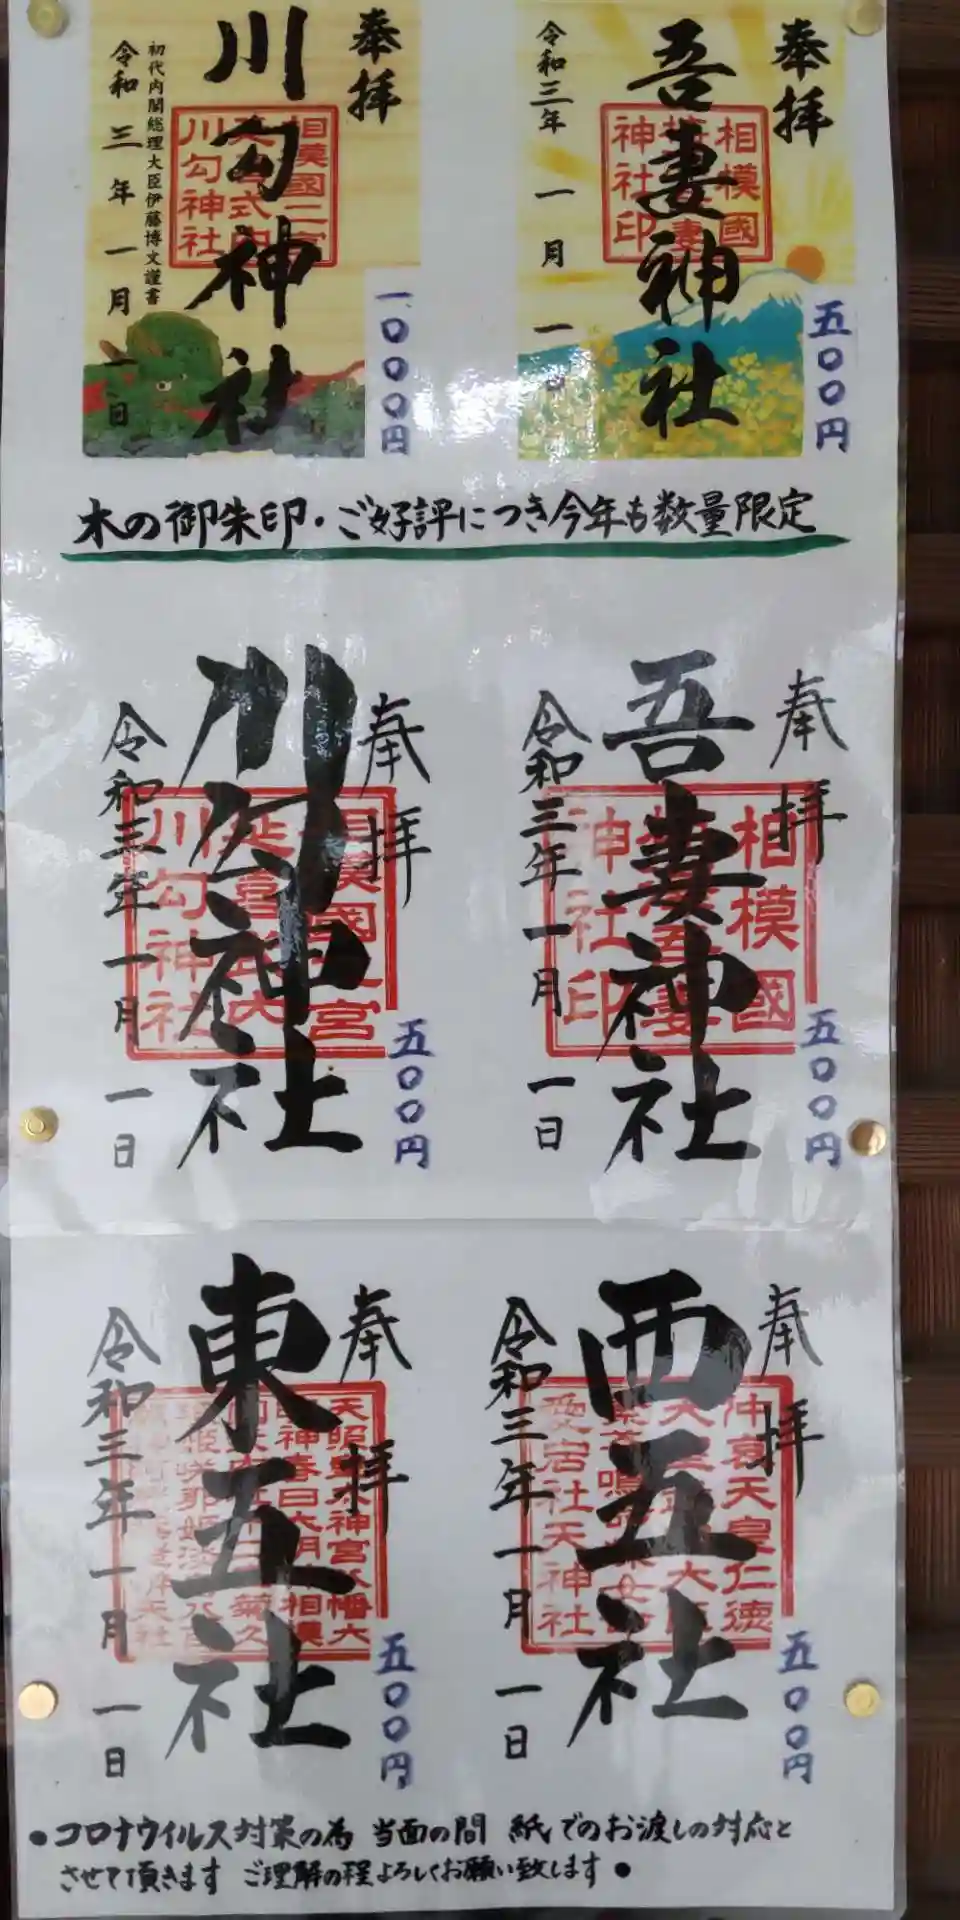 奉拝
吾妻神社
相模國
神社印
令和三年一月一日
五〇〇円
奉拝
川勾神社
相模國二宮
川勾神社
初代内閣総理大臣伊藤博文謹書
令和三年一月一日
一〇〇〇円
木の御朱印・ご好評につき今年も数量限定
奉拝
吾妻神社
相模國
神社印
令和三年一月一日
五〇〇円
奉拝
川勾神社
川勾神社
令和三年一月一日
五〇〇円
奉拝
西五社
仲哀天皇仁徳
愛宕社天神社
令和三年一月一日
五〇〇円
奉拝
東五社
令和三年一月一日
五〇〇円
●コロナウイルス対策の為 当面の間 紙でのお渡しの対応と
させて頂きます ご理解の程よろしくお願い致します●